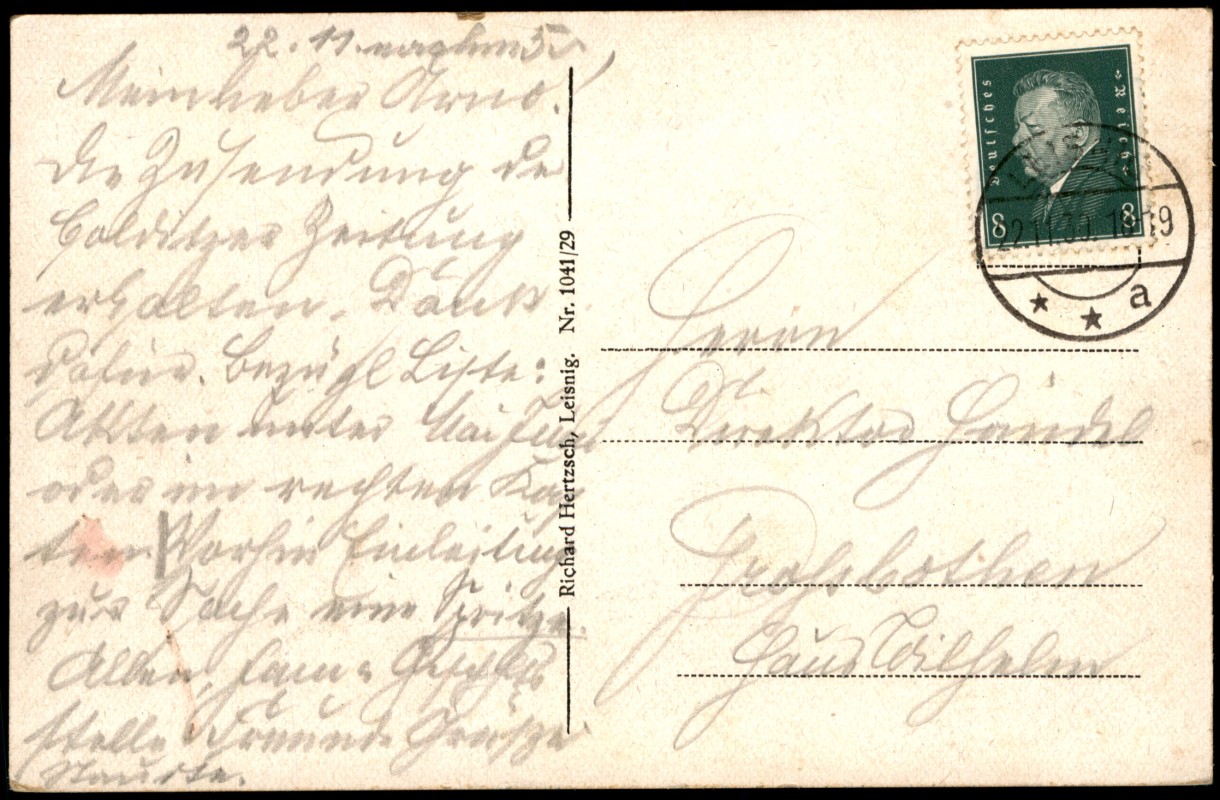 22. 11. nachm 5
Mein lieber Arno!
Die Zusendung de
Colditzer Zeitung
erhalten. Dank
dafür. Bezügl Liste:
Akten unter
oder im rechten
Vorhin Einleitung
zur Sache eine Spritze.
Allen, Fam =
stelle Freund. Grüße
Richard Hertzsch, Leisnig. Nr. 1041/29
Deutsches Reich
8 8
22.11.30. 18-19
* * a
Herrn
Direktor Händel
Großbothen
Haus Wilhelm